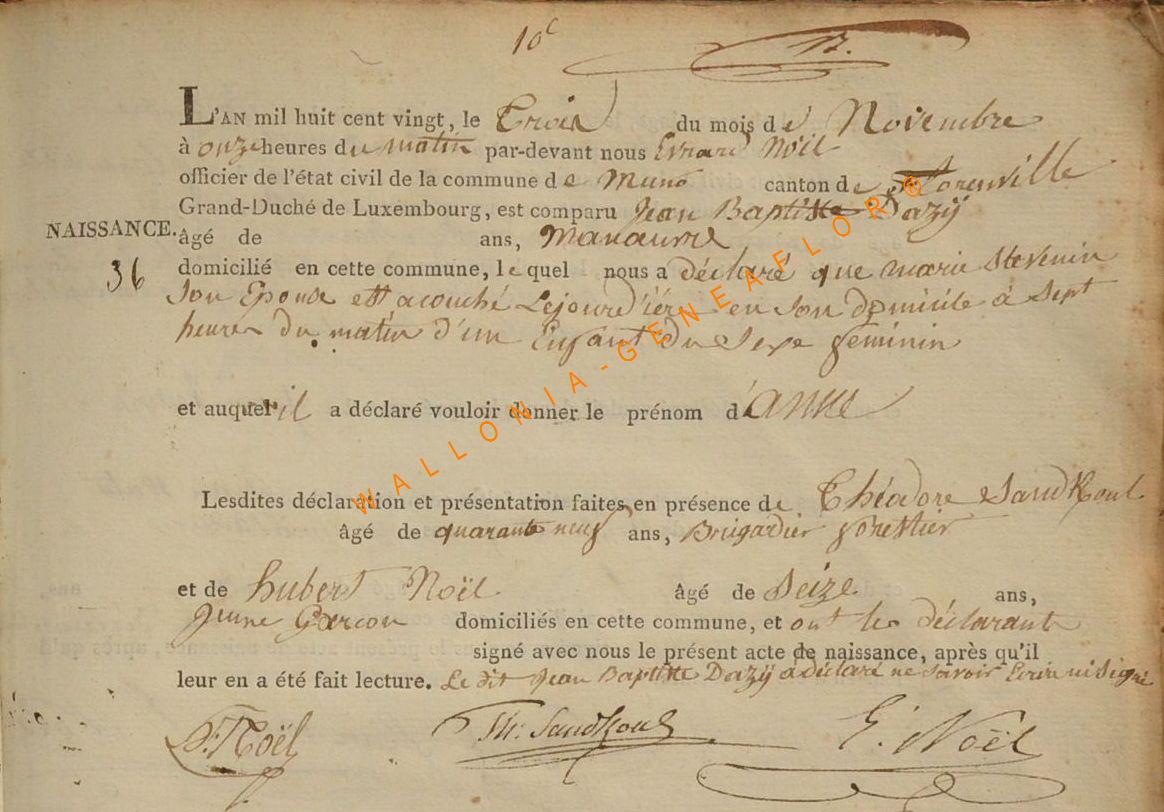 10e
12.
L'AN mil huit cent vingt, le Trois du mois de Novembre
à onze heures du matin par-devant nous Evrard Noël
officier de l'état civil de la commune de Muno canton de florenville
Grand-Duché de Luxembourg, est comparu Jean Baptiste Dazÿ
NAISSANCE. âgé de ans, Manœuvre
36
domicilié en cette commune, le quel nous a déclaré que marie Stevenin
Son Epouse est acouché Lejourd'iér en son domicile à Sept
heures du matin d'un Enfant du Sexe feminin
et auquel il a déclaré vouloir donner le prénom d'anne
Lesdites déclaration et présentation faites en présence de Théodore Sandkoul
âgé de quarante neuf ans, Brigadier forestier
et de hubert Noël âgé de Seize ans,
Jeune Garcon domiciliés en cette commune, et ont les déclarants
signé avec nous le présent acte de naissance, après qu'il
leur en a été fait lecture. Le dit Jean Baptiste Dazÿ a déclaré ne savoir Ecrire ni signé
Noël Th. Sandkoul E. Noël
WALLONIA-GENEAFLOR®